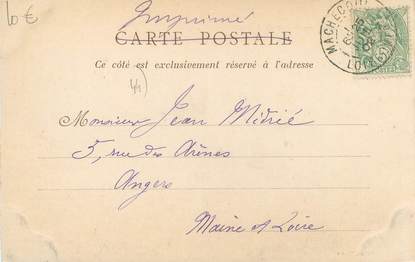 10€
Imprimé
CARTE POSTALE
Ce côté est exclusivement réservé à l'adresse
Monsieur Jean Midrié
5, rue des Arènes
Angers
Maine et Loire
MACHECOUL
LOIRE